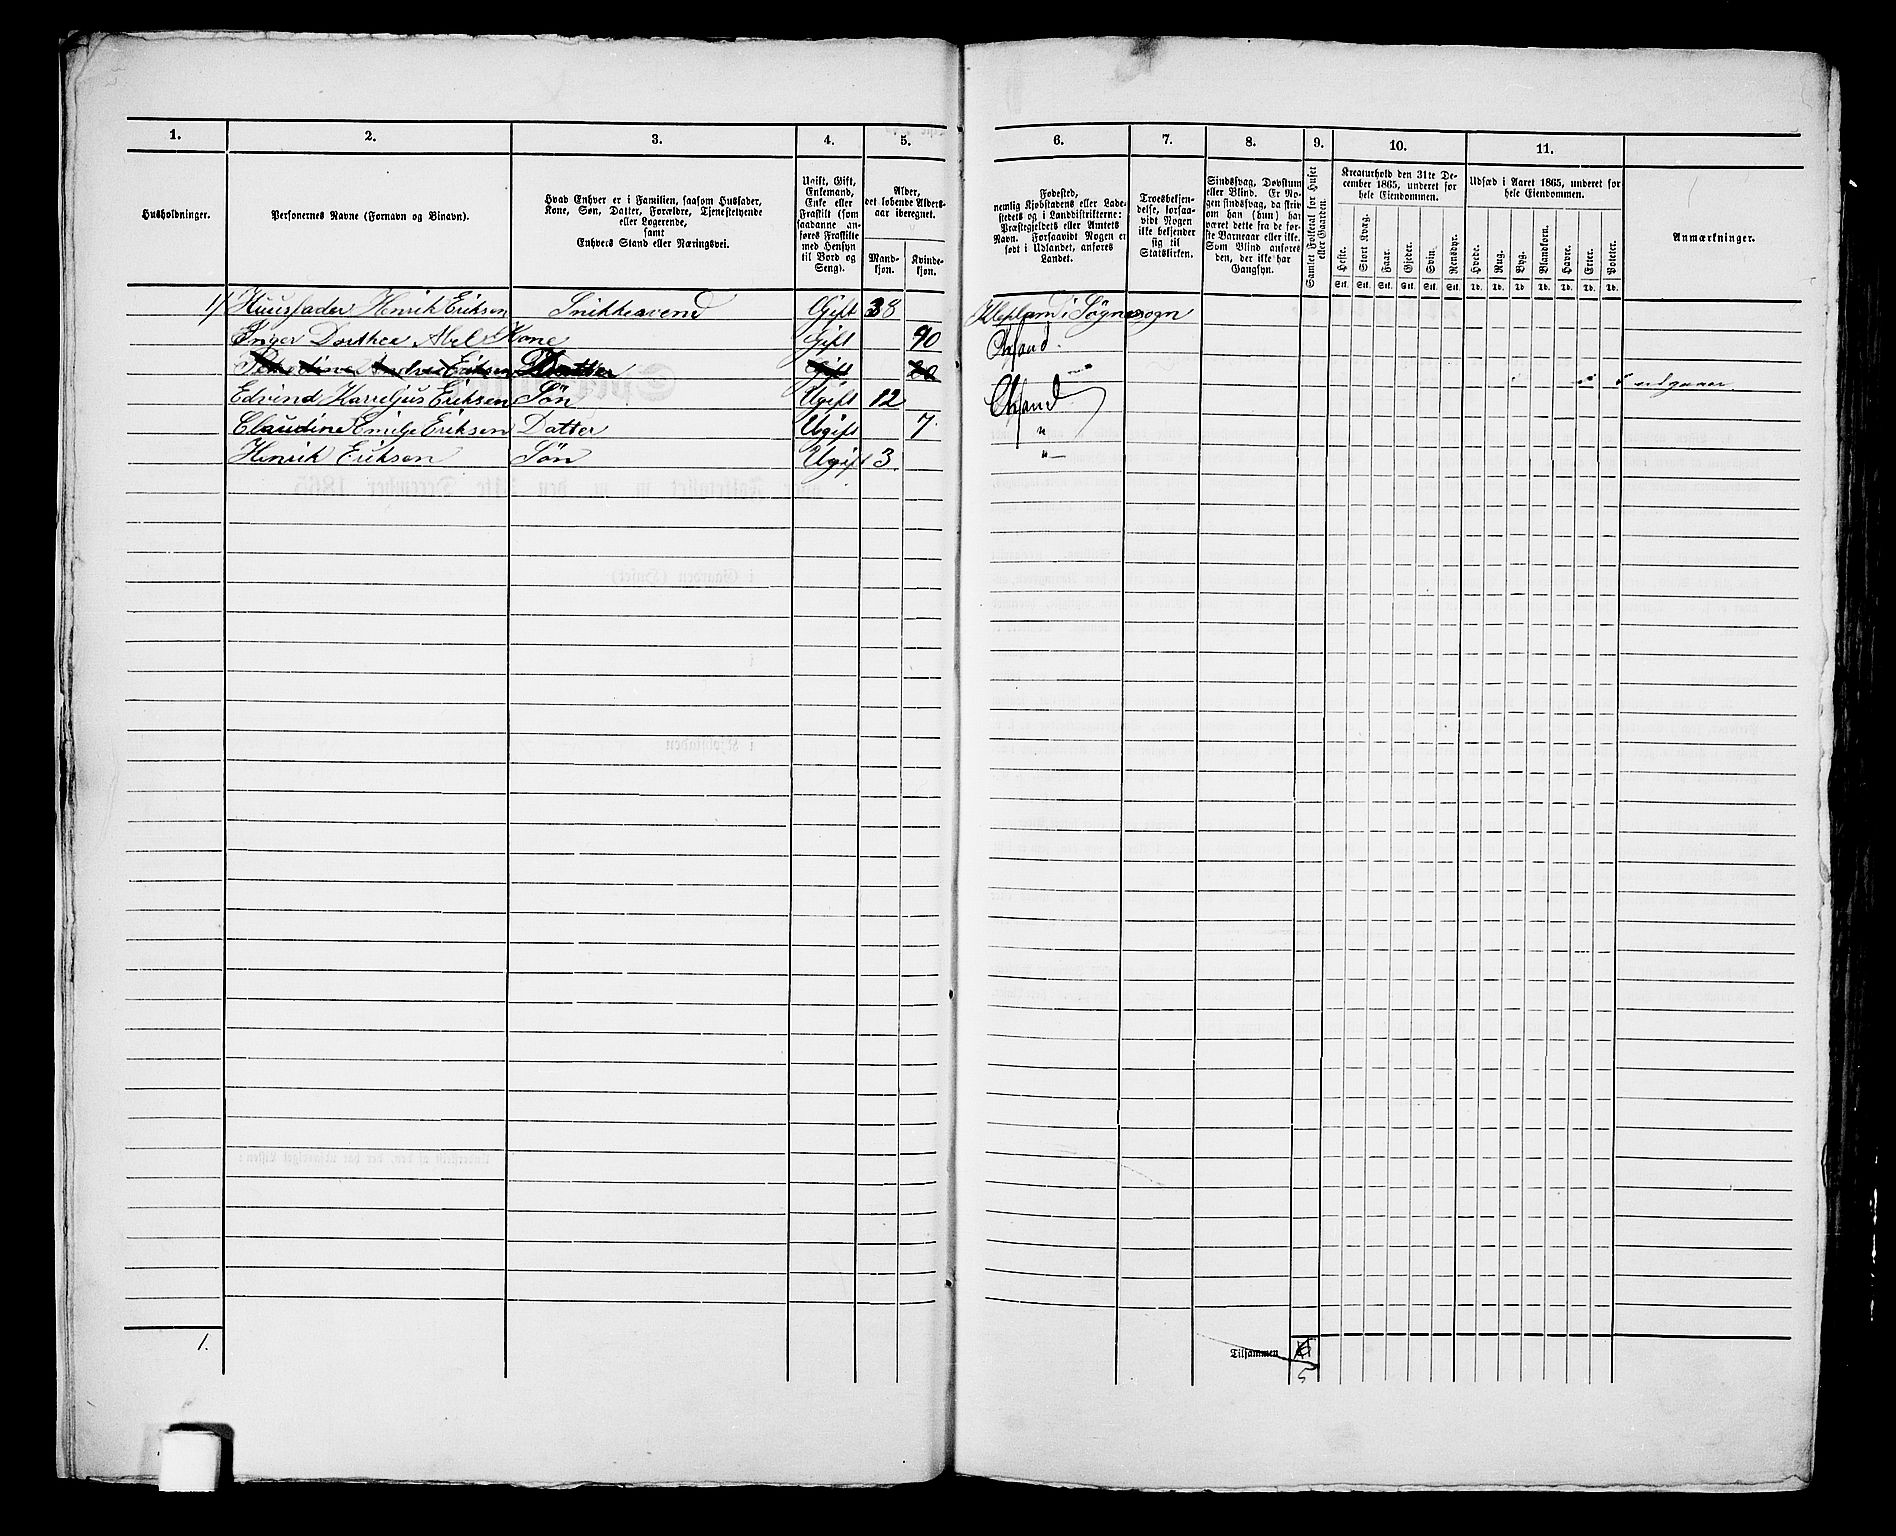 1. 2. 3. 4. 5. 6. 7. 8. 9. 10. 11.
Husholdninger.
Personernes Navne (Fornavn og Binavn).
Hvad Enhver er i Familien, saasom Husfader,
Kone, Søn, Datter, Forældre, Tjenestetyende
eller Logerende,
samt
Enhvers Stand eller Næringsvei.
Ugift, Gift,
Enkemand,
Enke eller
Fraskilt (som
saadanne an-
føres Fraskilte
med Hensyn
til Bord og
Seng).
Alder,
det løbende Alders-
aar iberegnet.
Mand-
kjøn.
Kvinde-
kjøn.
Fødested,
nemlig Kjøbstadens eller Lade-
stedets og i Landdistrikterne:
Præstegjeldets eller Amtets
Navn. Forsaavidt Nogen er
født i Udlandet, anføres
Landet.
Troesbekjen-
delse, forsaa-
vidt Nogen
ikke bekjender
sig til
Statskirken.
Sindssvag, Døvstum
eller Blind. Er No-
gen sindssvag, da skriv
om han (hun) har
været dette fra de før-
ste Barneaar eller ikke.
Som Blind anføres
den, der ikke har
Gangsyn.
Samlet Folketal for Huset
eller Gaarden.
Kreaturhold den 31te De-
cember 1865, underet for
hele Eiendommen.
Heste. Stort Kvæg. Faar. Gjeder. Svin. Rensdyr.
Stk. Stk. Stk. Stk. Stk. Stk.
Udsæd i Aaret 1865, underet for
hele Eiendommen.
Hvede. Rug. Byg. Blandkorn. Havre. Erter. Poteter.
Td. Td. Td. Td. Td. Td. Td.
Anmærkninger.
1/ Huusfader Henrik Eriksen Snikkesvend Gift 38 i Søgnesogn
Inger Dorthea Abel Kone Gift 40
Eriksen Datter Gift 20 udgaaer
Edvind Eriksen Søn Ugift 12
Claudine Emilje Eriksen Datter Ugift 7 "
Henrik Eriksen Søn Ugift 3 "
1. Tilsammen 6
5